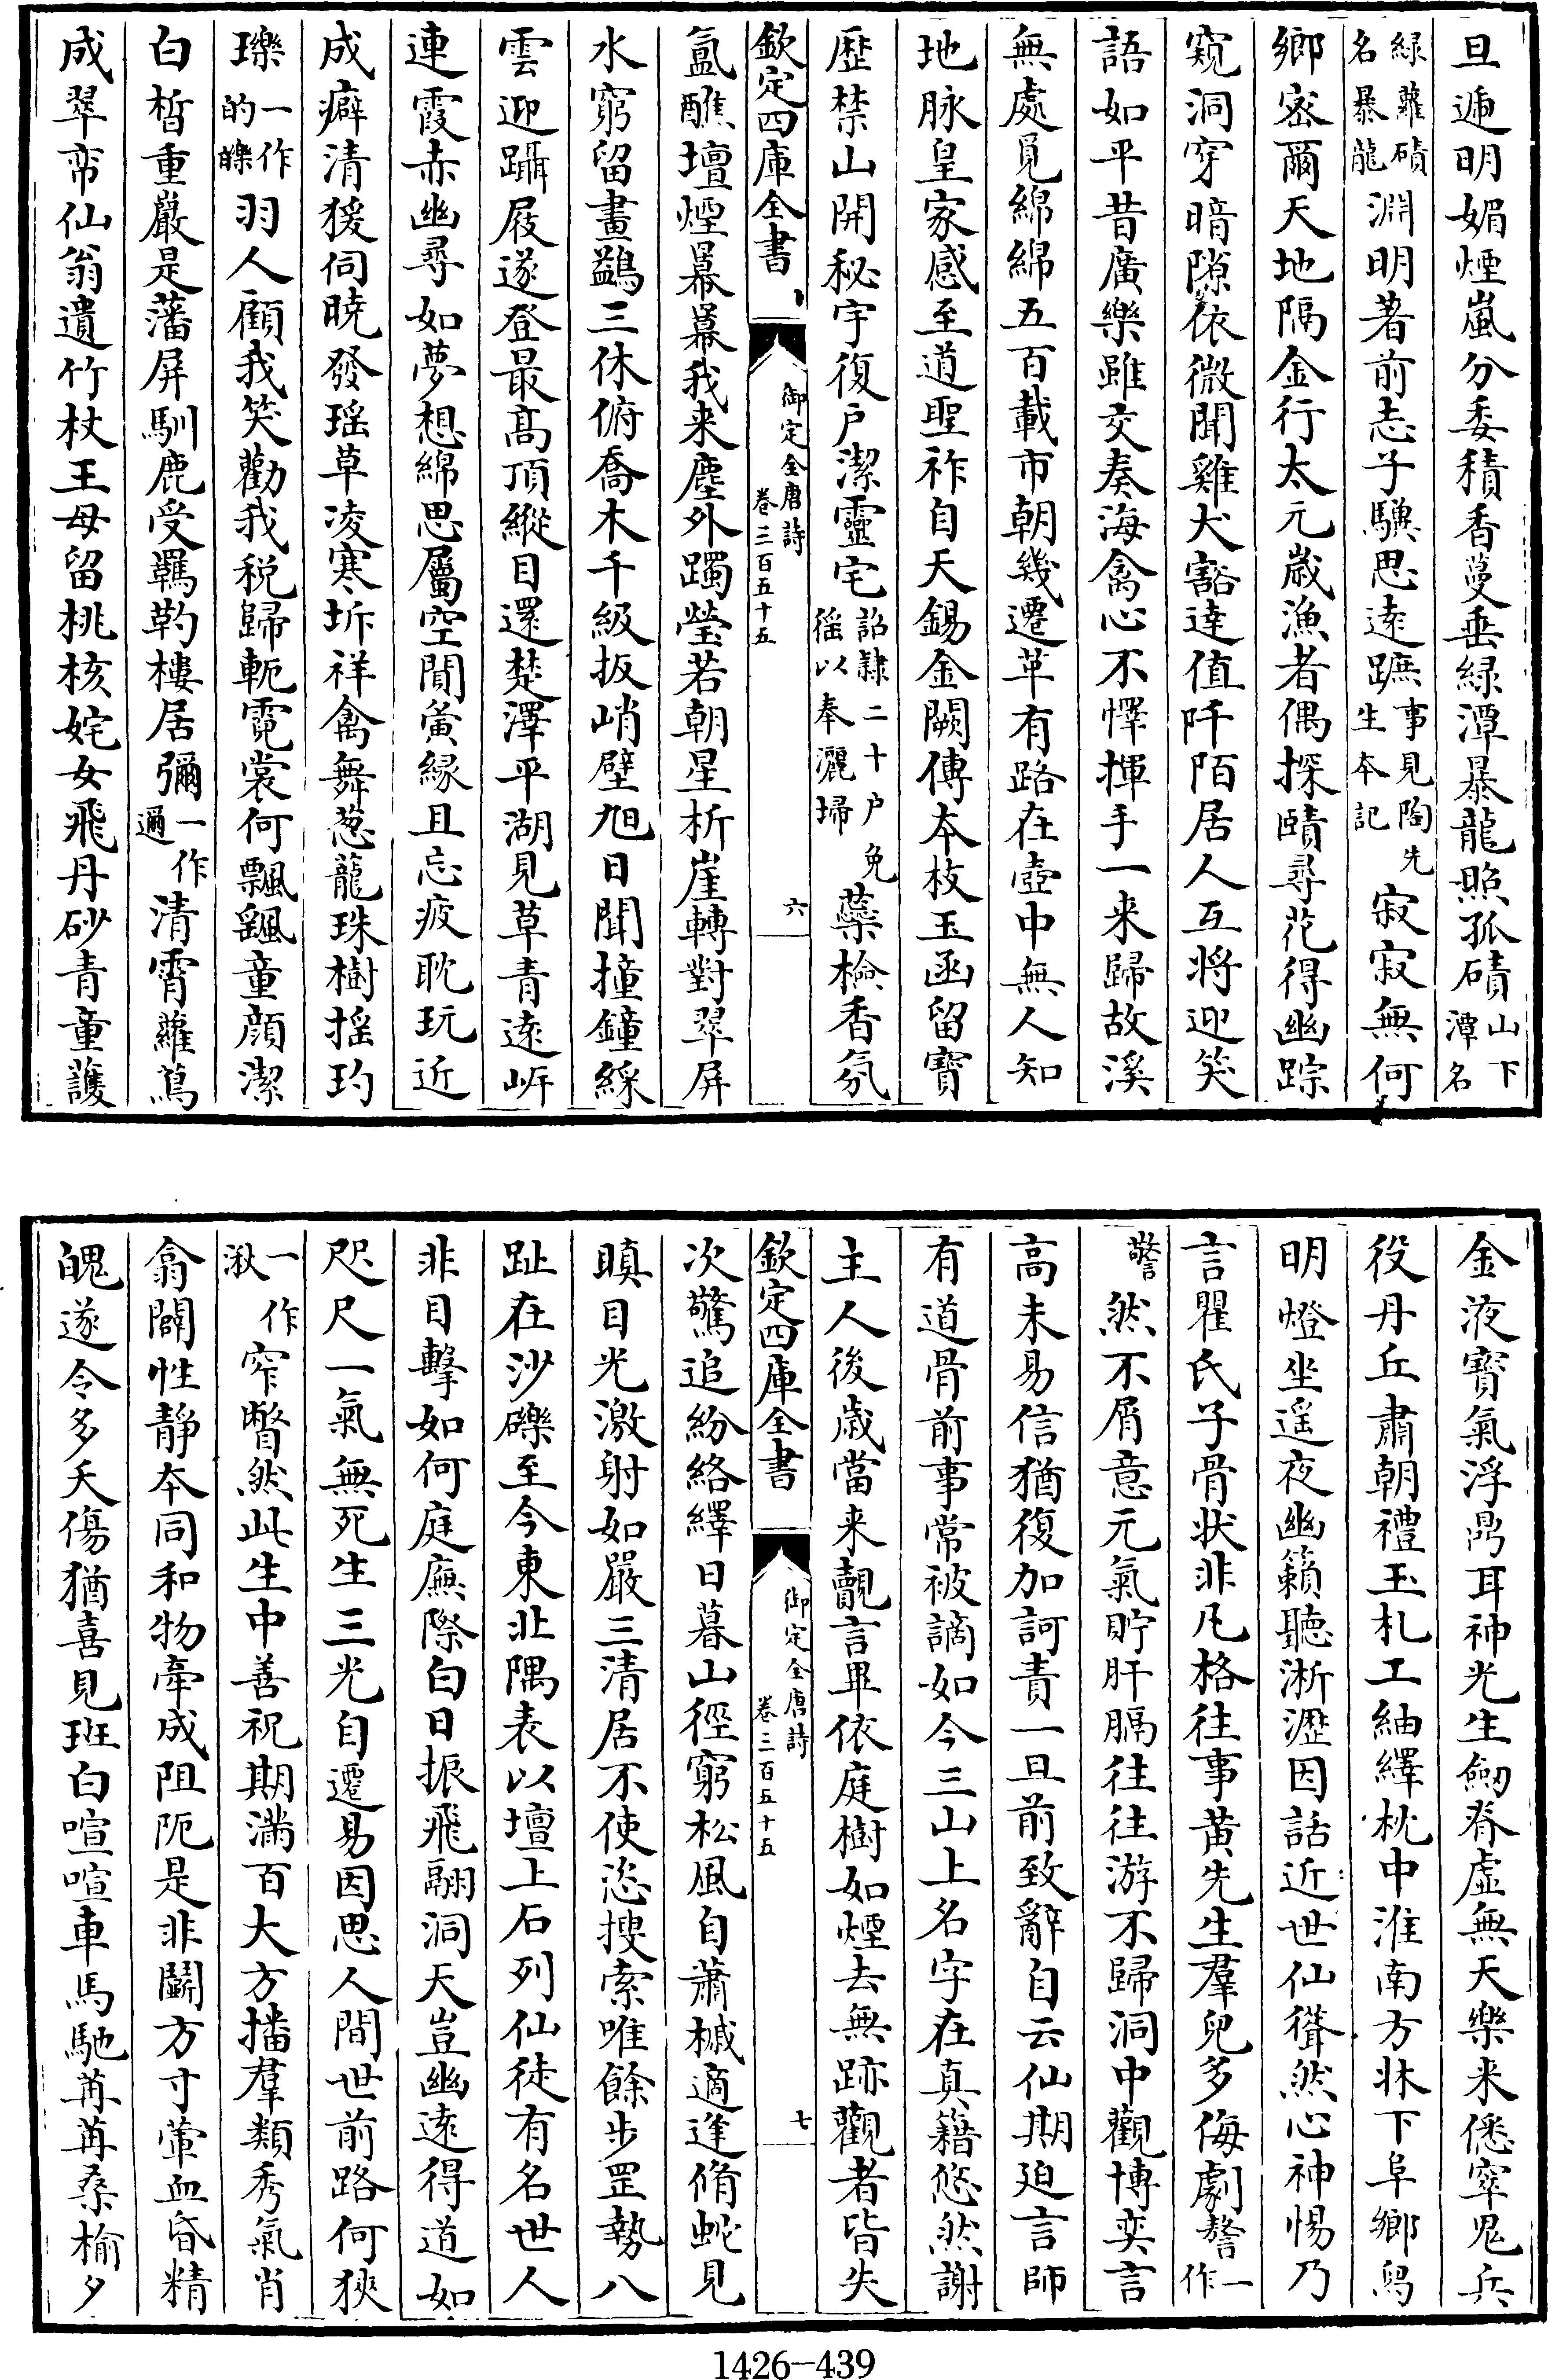 旦遞明媚煙嵐分委積香蔓垂綠潭暴龍照孤磧山下潭名
綠蘿磧名暴龍淵明著前志子驥思遠蹠事見陶先生本記寂寂無何
鄉密爾天地隔金行太元歲漁者偶探賾尋花得幽踪
窺洞穿暗隙依微聞雞犬豁達值阡陌居人互將迎笑
語如平昔廣樂雖交奏海禽心不懌揮手一来歸故溪
無處覓綿綿五百載市朝幾遷革有路在壺中無人知
地脉皇家感至道聖祚自天錫金闕傳本枝玉函留寶
歷禁山開秘宇復户潔靈宅詔隸二十户免徭以奉灑埽蘂檢香氛
欽定四庫全書
御定全唐詩
卷三百五十五
六
氳醮壇煙羃羃我来塵外躅瑩若朝星析崖轉對翠屏
水窮留畫鷁三休俯喬木千級扳峭壁旭日聞撞鐘綵
雲迎躡屐遂登最高頂縱目還楚澤平湖見草青遠岍
連霞赤幽尋如夢想綿思屬空閴夤緣且忘疲耽玩近
成癖清猨伺曉發瑶草凌寒坼祥禽舞葱蘢珠樹搖玓
瓅一作的皪羽人顧我笑勸我税歸軛霓裳何飄颻童顔潔
白晳重巖是藩屏馴鹿受羈靮樓居彌一作邇清霄蘿蔦
成翠帟仙翁遺竹杖王母留桃核姹女飛丹砂青童護
金液寶氣浮鼎耳神光生劒脊虚無天樂来僁窣鬼兵
役丹丘肅朝禮玉札工紬繹枕中淮南方牀下阜鄉舄
明燈坐遥夜幽籟聽淅瀝因話近世仙聳然心神惕乃
言瞿氏子骨状非凡格往事黄先生羣兒多侮劇謷一作
警然不屑意元氣貯肝膈往往游不歸洞中觀博奕言
高未易信猶復加訶責一旦前致辭自云仙期迫言師
有道骨前事常被謫如今三山上名字在真籍悠然謝
主人後歲當来覿言畢依庭樹如煙去無跡觀者皆失
欽定四庫全書
御定全唐詩
卷三百五十五
七
次驚追紛絡繹日暮山徑窮松風自蕭槭適逢脩蛇見
瞋目光激射如嚴三清居不使恣搜索唯餘步罡勢八
趾在沙礫至今東北隅表以壇上石列仙徒有名世人
非目擊如何庭廡際白日振飛翮洞天豈幽遠得道如
咫尺一氣無死生三光自遷易因思人間世前路何狹
一作湫窄瞥然此生中善祝期滿百大方播羣類秀氣肖
翕闢性靜本同和物牽成阻阨是非鬭方寸葷血昏精
魄遂令多夭傷猶喜見班白喧喧車馬馳苒苒桑榆夕
1426-439